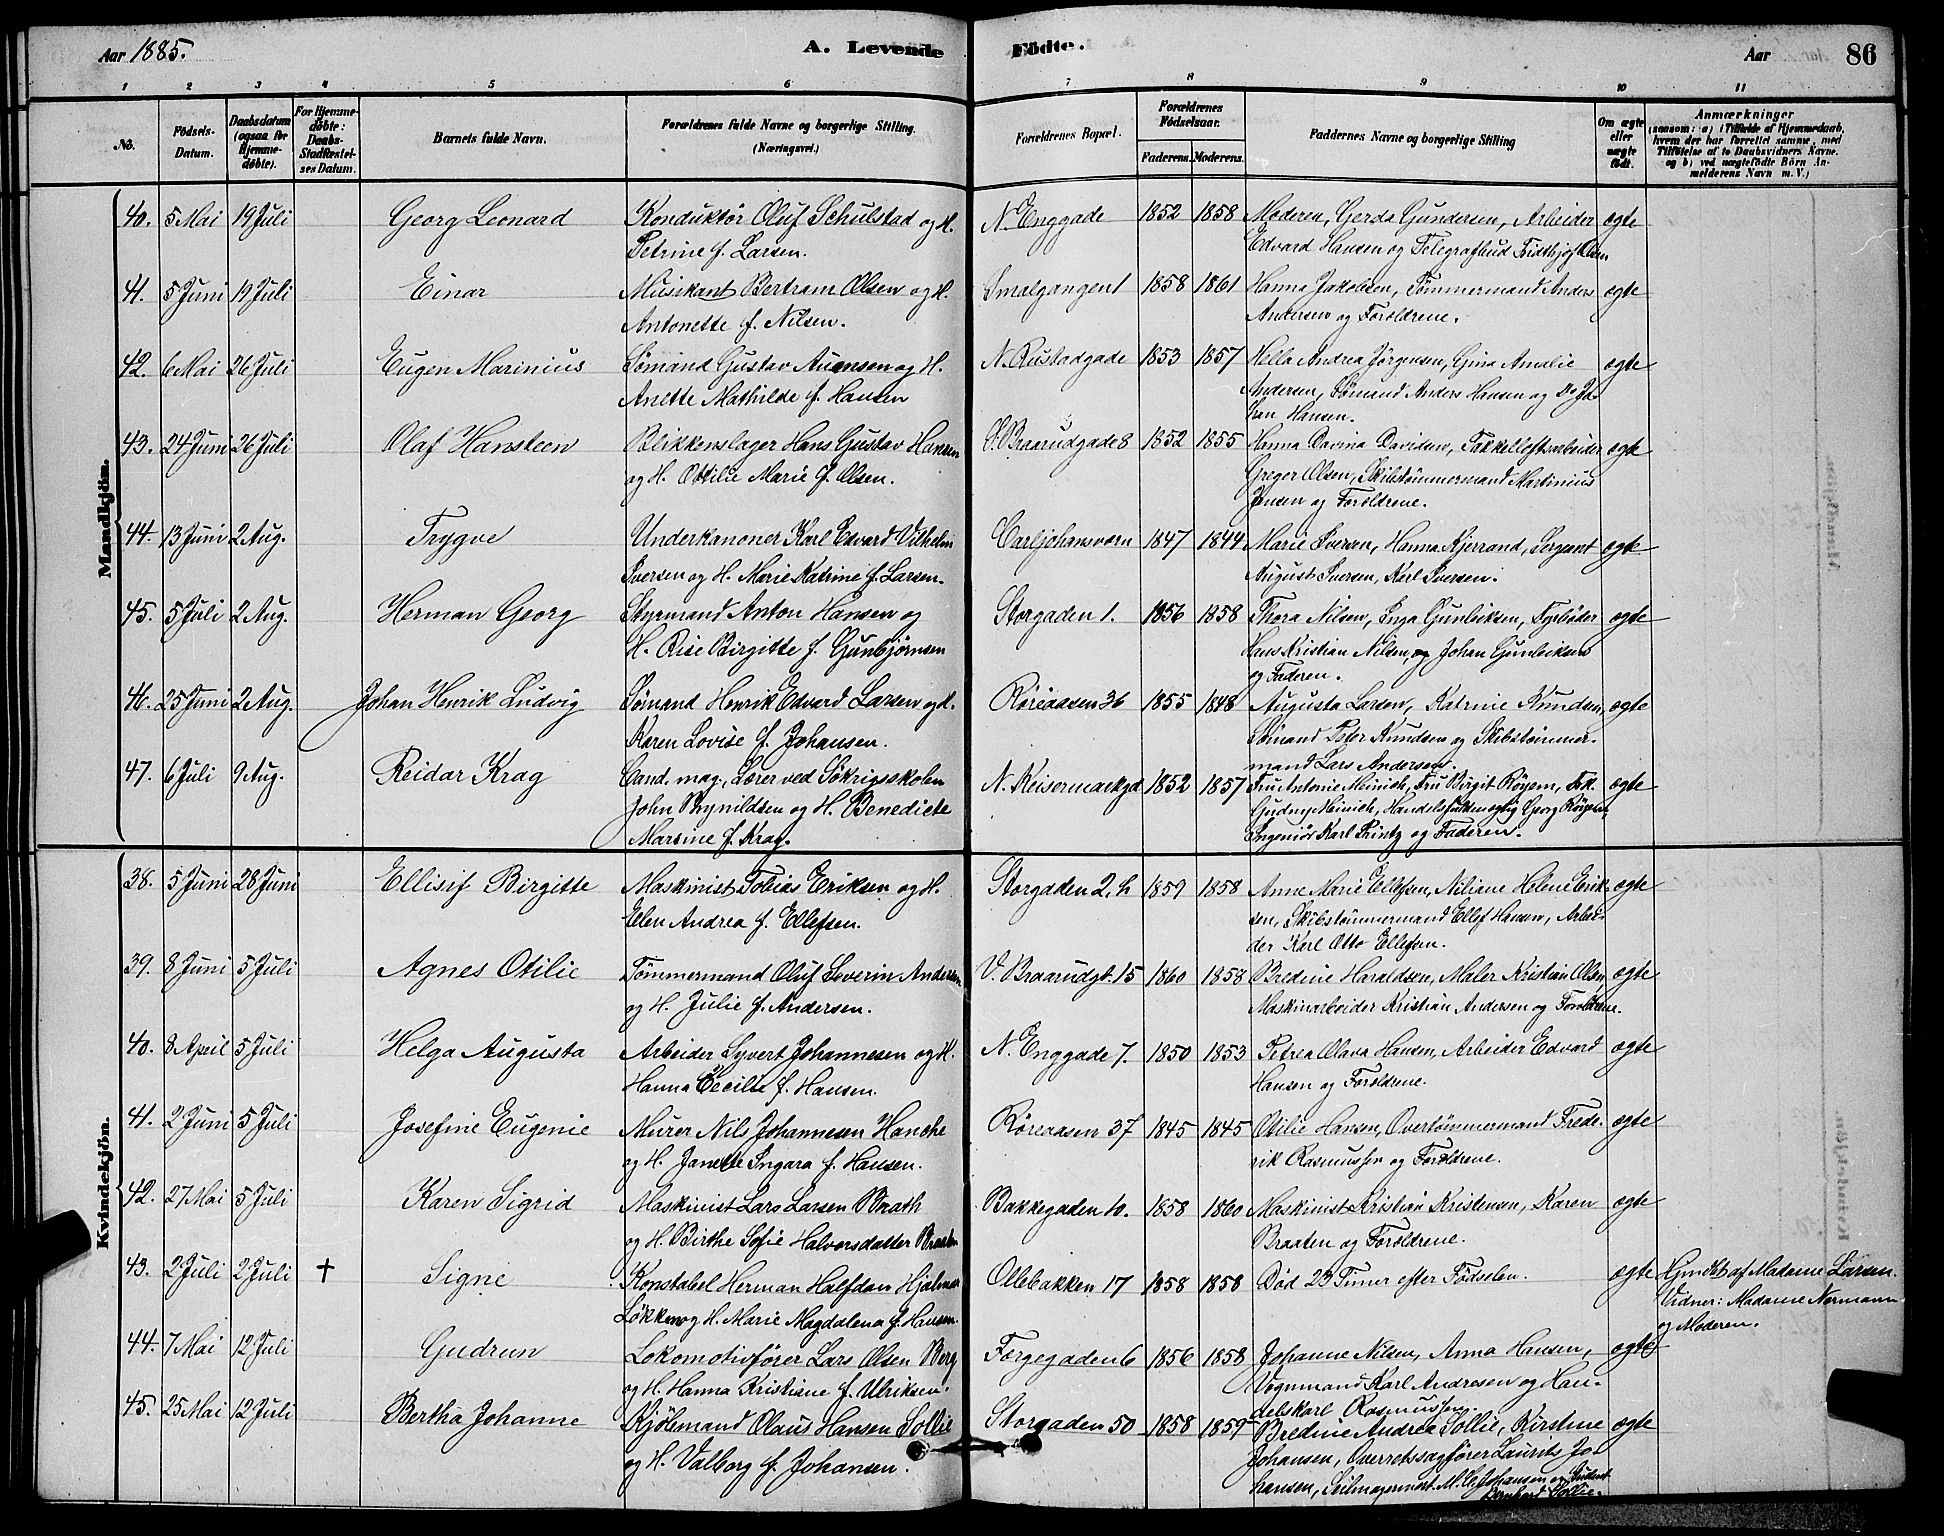 Aar 1885. A. Levende Födte. Aar 86
1 2 3 4 5 6 7 8 9 10 11
No. Födsels-Datum. Daabsdatum (ogsaa for Hjemmedøbte). For Hjemmedøbte: Daabs-Stadfæstelses Datum. Barnets fulde Navn. Forældrenes fulde Navne og borgerlige Stilling. (Næringsvei.) Forældrenes Bopæl. Forældrenes Födselsaar. Faderens. Moderens. Faddernes Navne og borgerlige Stilling Om ægte eller uægte födt. Anmærkninger (saasom: a) i Tilfælde af Hjemmedaab, hvem der har forrettet samme, med Tilföielse af to Daabsvidners Navne. og b) ved uægtefödte Börn Anmelderens Navn m. V.)
Mandkjön.
40. 5 Mai 19 Juli Georg Leonard Konduktör Oluf Schulstad og H. N. Enggade 1852 1858 Moderen, Gerda Gundersen, Arbeider ægte
Petrine f. Larsen. Edvard Hansen og Telegrafbud Fridthjof Olsen
41. 5 Juni 19 Juli Einar Musikant Bertram Olsen og H. Smalgangen 1 1858 1861 Hanna Jakobsen, Tömmermand Anders ægte
Antonette f. Nilsen. Andersen og Forældrene.
42. 6 Mai 26 Juli Eugen Marinius Sömand Gustav Auensen og H. N. Rustadgade 1853 1857 Hella Andrea Jörgensen, Gina Amalie ægte
Anette Mathilde f. Hansen Andersen, Sömand Anders Hansen og Do Jo-
han Hansen.
43. 24 Juni 26 Juli Olaf Hansteen Blikkenslager Hans Gustav Hansen V. Braarudgade 8 1852 1855 Hanna Davina Davidsen, Takkelloftsarbeider ægte
og H. Ottilie Marie f. Olsen. Greger Olsen, Skibstömmermand Martinius
Jensen og Forældrene.
44. 13 Juni 2 Aug. Trygve Underkanoner Karl Edvard Vilhelm Carljohansværn 1847 1844 Marie Iversen, Hanna Kjerrand, Sergeant ægte
Iversen og H. Marie Katrine f. Larsen. August Iversen, Karl Iversen.
45. 5 Juli 2 Aug. Herman Georg Styrmand Anton Hansen og Storgaden 1. 1856 1858 Thora Nilsen, Inga Gunleiksen, Fyrböder ægte
H. Rise Birgitte f. Gunbjørnsen Hans Kristian Nilsen, og Johan Gunleiksen
og Faderen.
46. 25 Juni 2 Aug. Johan Henrik Ludvig Sömand Henrik Edvard Larsen og H. Röreaasen 36 1855 1848 Augusta Larsen, Katrine Knudsen, ægte
Karen Lovise f. Johansen. Sömand Peter Knudsen og Skibstömmer-
mand Lars Andersen.
47. 6 Juli 9 Aug. Reidar Krag Cand. mag., Lærer ved Sökrigsskolen N. Keisermarkgd 1852 1857 Fru Antonie Meinich, Fru Birgit Röyem, Frk. ægte
John Brynildsen og H. Benedicte Gudny Meinich, Handelsfuldmægtig Georg Röyem,
Marsine f. Krag. Ingeniör Karl Printz og Faderen.
Kvindekjön.
38. 5 Juni 28 Juni Ellisif Birgitte Maskinist Tobias Eriksen og H. Storgaden 2, h 1859 1858 Anne Marie Ellefsen, Niliane Helene Erik- ægte
Elen Andrea f. Ellefsen. sen, Skibstömmermand Ellef Hansen, Arbei-
der Karl Otto Ellefsen.
39. 8 Juni 5 Juli Agnes Otilie Tömmermand Oluf Severin Andersen V. Braarudgt. 15 1860 1858 Bredine Haraldsen, Maler Kristian Olsen ægte
og H. Julie f. Andersen. Maskinarbeider Kristian Andersen og Forældrene.
40. 8 April 5 Juli Helga Augusta Arbeider Syvert Johannesen og H. N. Enggade 7. 1850 1853 Petrea Olava Hansen, Arbeider Edvard ægte
Hanna Cecilie f. Hansen. Hansen og Forældrene.
41. 2 Juni 5 Juli Josefine Eugenie Murer Nils Johannesen Hanche Röreaasen 37 1845 1845 Otilie Hansen, Overtömmermand Frede- ægte
og H. Janette Ingara f. Hansen. rik Rasmussen og Forældrene.
42. 27 Mai 5 Juli Karen Sigrid Maskinist Lars Larsen Brath Bakkegaden 10. 1858 1860 Maskinist Kristian Kristensen, Karen ægte
og H. Birthe Sofie Halvorsdatter Braaten Braaten og Forældrene.
43. 2 Juli 2 Juli † Signe Konstabel Herman Halfdan Hjalmar Ollebakken 17 1858 1858 Död 23 Timer efter Födselen. ægte Hjmdbt af Madame Larsen.
Lökken og H. Marie Magdalena f. Hansen. Vidner: Madame Normann
og Moderen.
44. 7 Mai 12 Juli Gudrun Lokomotivförer Lars Olsen Berg Færgegaden 6 1856 1858 Johanne Nilsen, Anna Hansen, ægte
og H. Hanna Kristiane f. Ulriksen. Vognmand Karl Andresen og Han-
delskarl Rasmussen.
45. 25 Mai 12 Juli Bertha Johanne Kjöbmand Olaus Hansen Sollie Storgaden 50 1858 1859 Bredine Andrea Sollie, Kirstine ægte
og H. Valborg f. Johansen. Johansen, Overretssagförer Laurits Jo-
hansen, Seilmagermest. M. Johansen og Student
Bernhard Sollie.